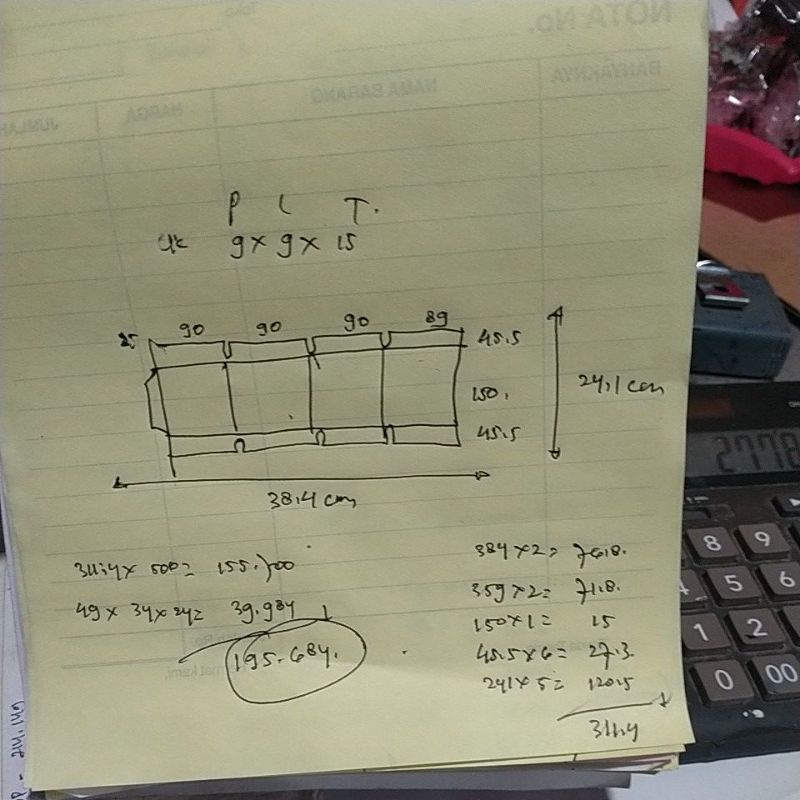 NOTA No.
BANYAKNYA NAMA BARANG HARGA JUMLAH
P L T.
uk 9 x 9 x 15
25 90 90 90 89 45.5
150.
45.5
24,1 cm
38.4 cm
311.4 x 500 = 155.700
49 x 34 x 24 = 39.984
195.684.
384 x 2 = 76.8.
359 x 2 = 71.8.
150 x 1 = 15
45.5 x 6 = 27.3
241 x 5 = 120.5
311.4
8 9
5 6
1 2
0 00